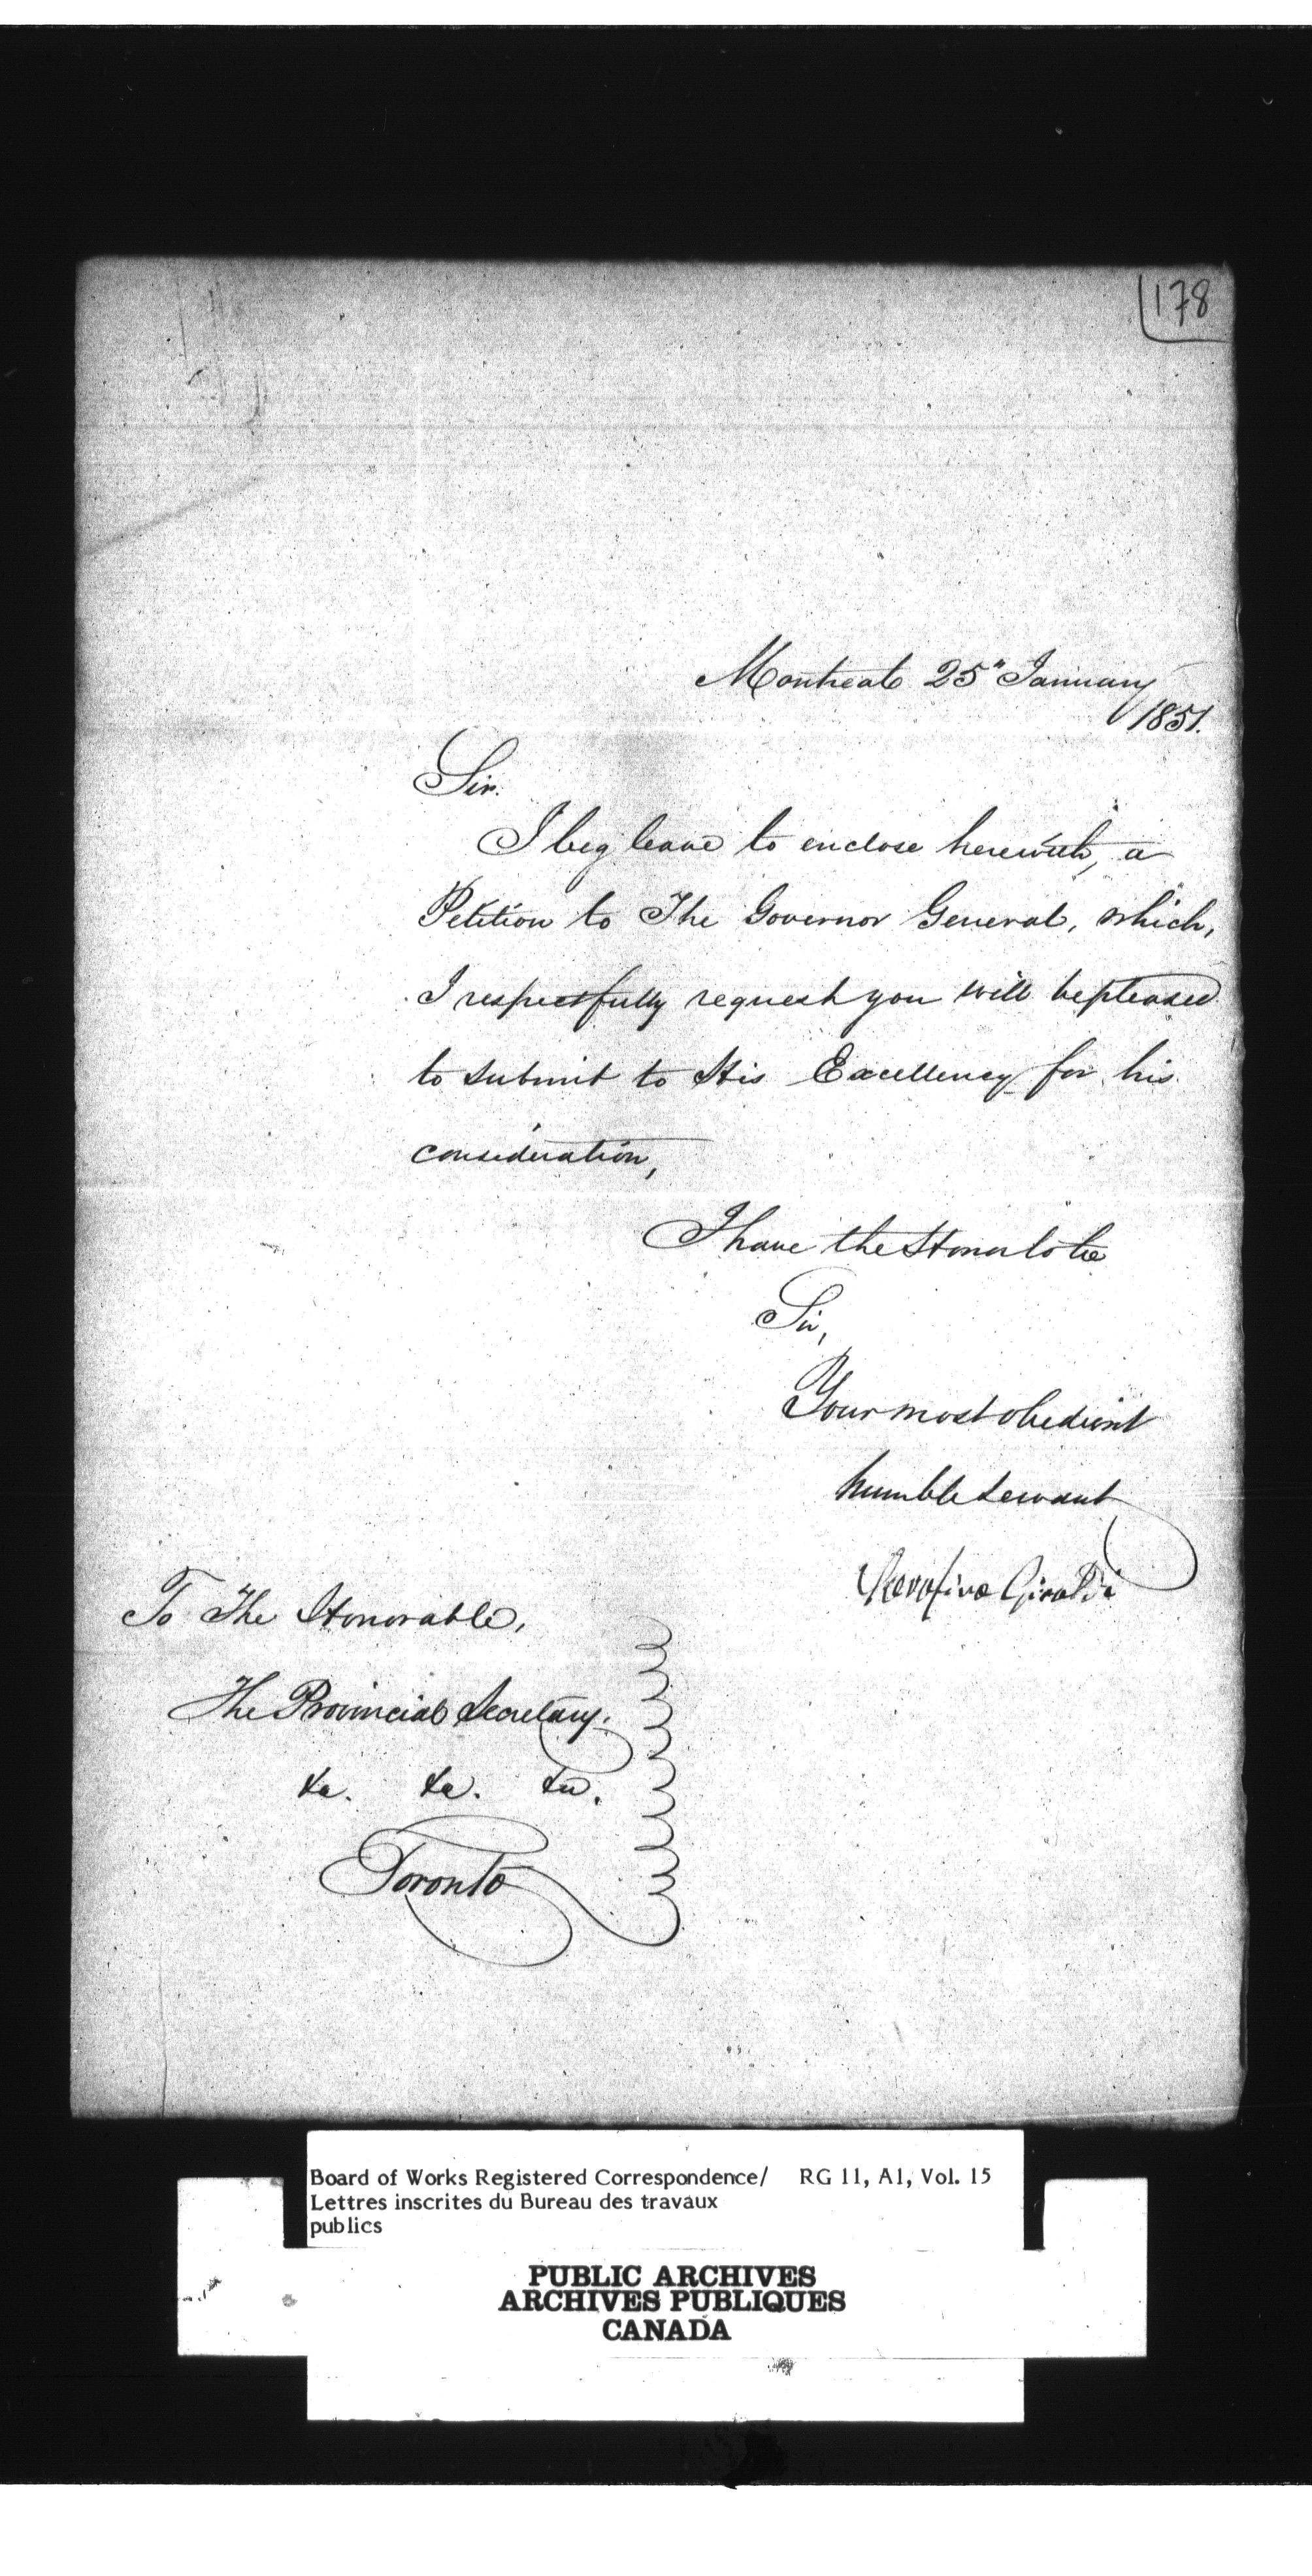 178
Montreal 25" January
1851.
Sir.
I beg leave to enclose herewith, a
Petition to The Governor General, which,
I respectfully request you will be pleased
to submit to His Excellency for his
consideration,
I have the Honor to be
Sir,
Your most obedient
humble servant
Serafino Giraldi
To The Honorable,
The Provincial Secretary.
&c. &c. &c.
Toronto
Board of Works Registered Correspondence/ RG 11, A1, Vol. 15
Lettres inscrites du Bureau des travaux
publics
PUBLIC ARCHIVES
ARCHIVES PUBLIQUES
CANADA